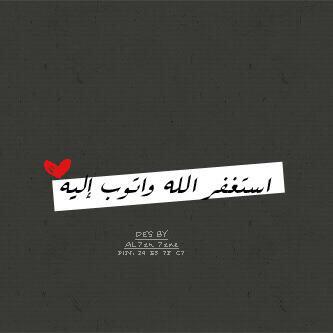 استغفر الله واتوب إليه
DES BY
AL7zn 7zne
PIN: 29 E3 7E C7